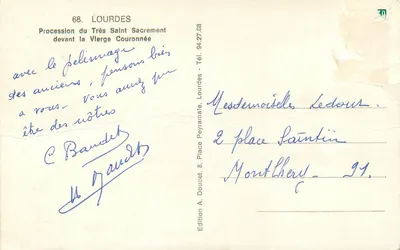 68. LOURDES
Procession du Très Saint Sacrement
devant la Vierge Couronnée
avec le pèlerinage
des anciens, pensons bien
a vous. Vous auriez pu
être des nôtres
C Baudet
M Baudet
Edition A. Doucet, 8, Place Peyramale, Lourdes - Tél. 94.27.08
Mesdemoiselles Ledoux
2 place Saintin
Montlhéry 91.